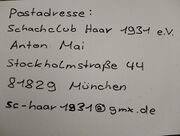 Postadresse:
Schachclub Haar 1931 e.V.
Anton Mai
Stockholmstraße 44
81829 München
sc-haar1931@gmx.de